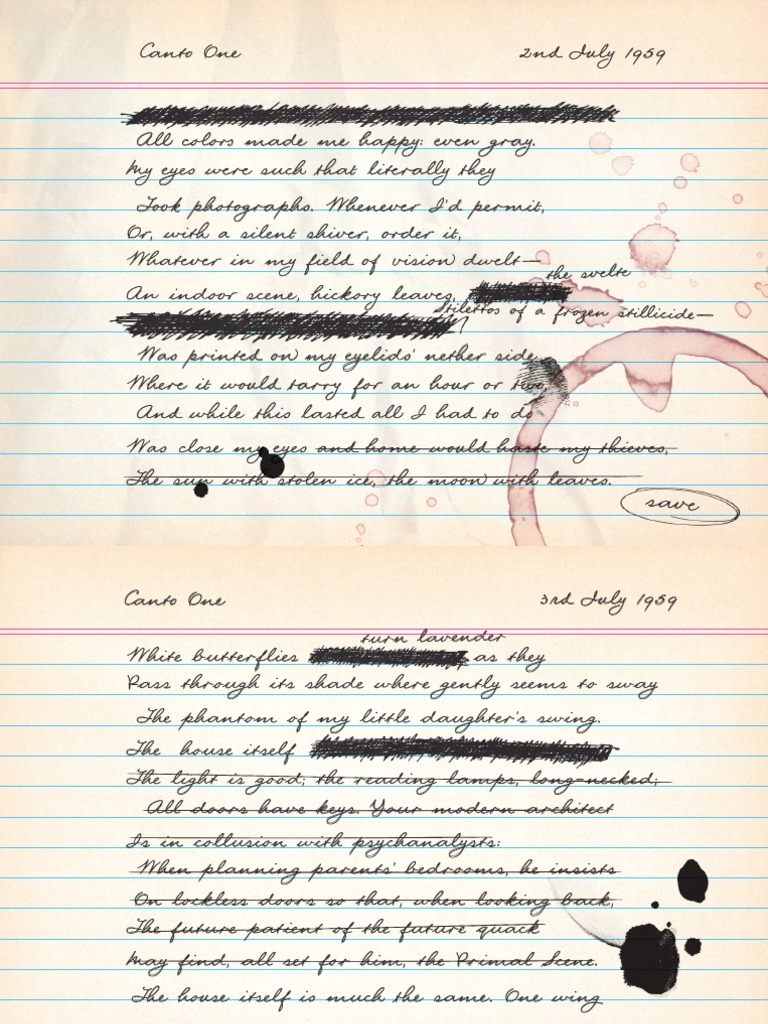 Canto One
2nd July 1959
All colors made me happy: even gray.
My eyes were such that literally they
Took photographs. Whenever I'd permit,
Or, with a silent shiver, order it,
Whatever in my field of vision dwelt—
the svelte
An indoor scene, hickory leaves,
Stilettos of a frozen stillicide—
Was printed on my eyelids' nether side
Where it would tarry for an hour or two,
And while this lasted all I had to do
Was close my eyes and home would haste my thieves,
The sun with stolen ice, the moon with leaves.
save
Canto One
3rd July 1959
turn lavender
White butterflies as they
Pass through its shade where gently seems to sway
The phantom of my little daughter's swing.
The house itself
The light is good; the reading lamps, long-necked;
All doors have keys. Your modern architect
Is in collusion with psychanalysts:
When planning parents' bedrooms, he insists
On lockless doors so that, when looking back,
The future patient of the future quack
May find, all set for him, the Primal Scene.
The house itself is much the same. One wing